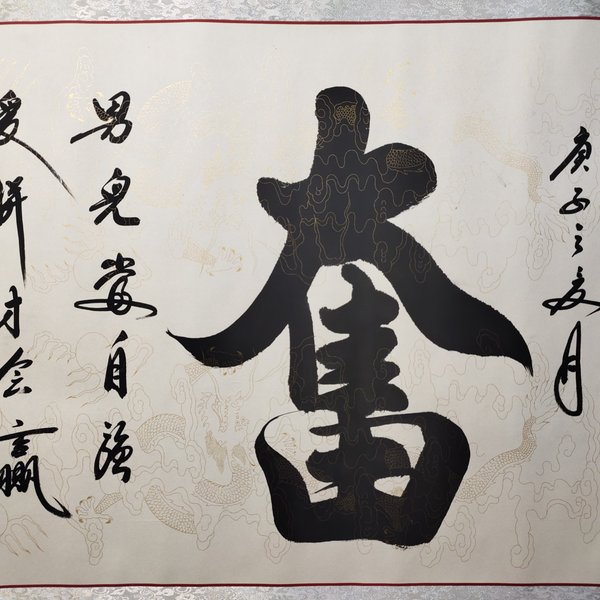 庚子之夏月
奮
男兒當自強
爱拼才会贏